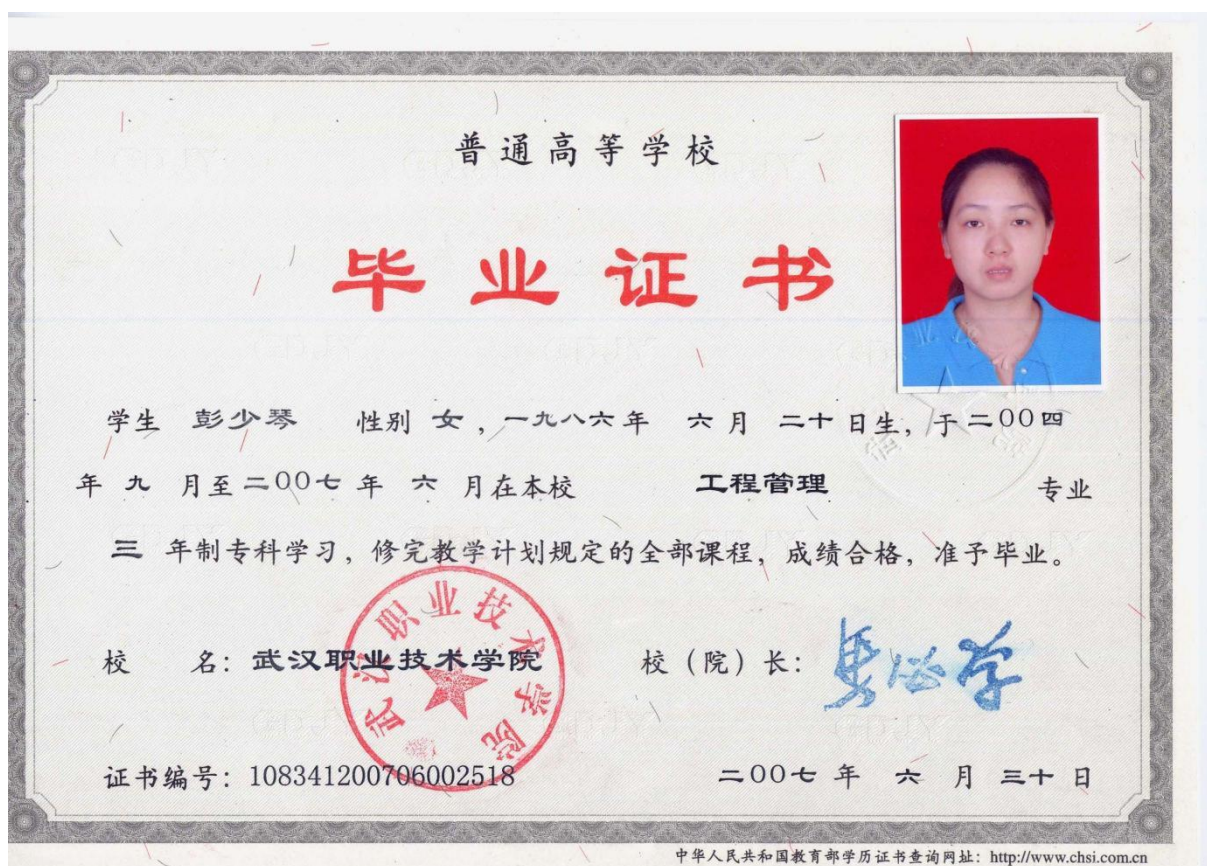 普通高等学校
毕业证书
学生 彭少琴 性别 女 ，一九八六年 六月 二十日生，于二〇〇四
年 九 月至二〇〇七年 六 月在本校 工程管理 专业
三 年制专科学习，修完教学计划规定的全部课程，成绩合格，准予毕业。
校 名：武汉职业技术学院 校（院）长：
武汉职业技术学院
证书编号：108341200706002518 二〇〇七年 六 月 三十日
中华人民共和国教育部学历证书查询网址：http://www.chsi.com.cn